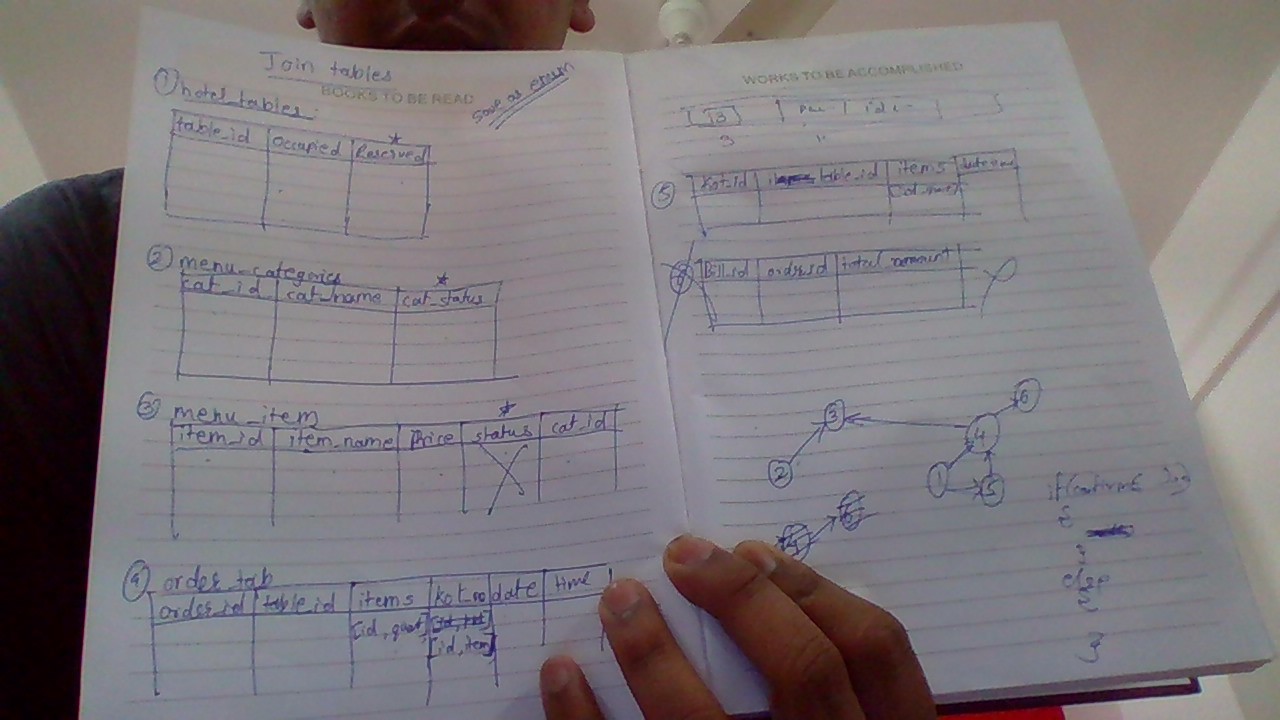 Join tables
BOOKS TO BE READ
save as enum
① hotel_tables:
table_id | Occupied | Reserved *
② menu_categories
cat_id | cat_name | cat_status *
③ menu_item
item_id | item_name | Price | status * | cat_id
④ order_tab
order_id | table_id | items | kot_no | date | time
[id, quat] [id, item]
WORKS TO BE ACCOMPLISHED
[13]
3 "
⑤ Kot_id | table_id | items
Bill_id | order_id | total_amount
③ ⑥
④
② ① ⑤
{
}
else
{
}